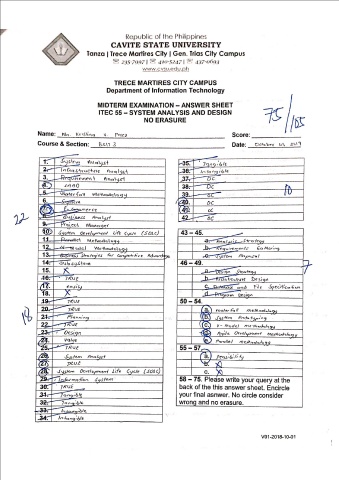 Republic of the Philippines
CAVITE STATE UNIVERSITY
Tanza | Trece Martires City | Gen. Trias City Campus
www.cvsu.edu.ph
TRECE MARTIRES CITY CAMPUS
Department of Information Technology
MIDTERM EXAMINATION – ANSWER SHEET
ITEC 55 – SYSTEM ANALYSIS AND DESIGN
NO ERASURE
75/105
Name: Ma. Kristina
Score:
Course & Section:
Date: October
1. System Analyst
2. Infrastructure Analyst
3. Requirement Analyst
4.
5. Waterfall Methodology
6.
7.
8. Business Analyst
9. Project Manager
10. System Development Life Cycle (SDLC)
11. Parallel Methodology
12. V-Model Methodology
13. Business Strategies for Competitive Advantage
14.
15. X
16. TRUE
17.
18. X
19. TRUE
20. TRUE
21. Planning
22. TRUE
23. Design
24. Value
25. TRUE
26. System Analyst
27. TRUE
28. System Development Life Cycle (SDLC)
29. Information System
30. TRUE
31. Tangible
32. Tangible
33. Intangible
34. Intangible
22
18
35. Tangible
36. Intangible
37. OC
38. OC
39. OC
40. OC
41.
42. OC
10
43 – 45.
a. Analysis Strategy
b. Requirements Gathering
c. System Proposal
46 – 49.
7
a. Design Strategy
b. Architecture Design
c. Database and File Specification
d. Program Design
50 – 54.
a. Waterfall methodology
b. System Prototyping
c. V-model methodology
d. Agile Development methodology
e. Parallel methodology
55 – 57.
a. Feasibility
b. X
c. X
58 – 75. Please write your query at the
back of the this answer sheet. Encircle
your final asnwer. No circle consider
wrong and no erasure.
V01-2018-10-01